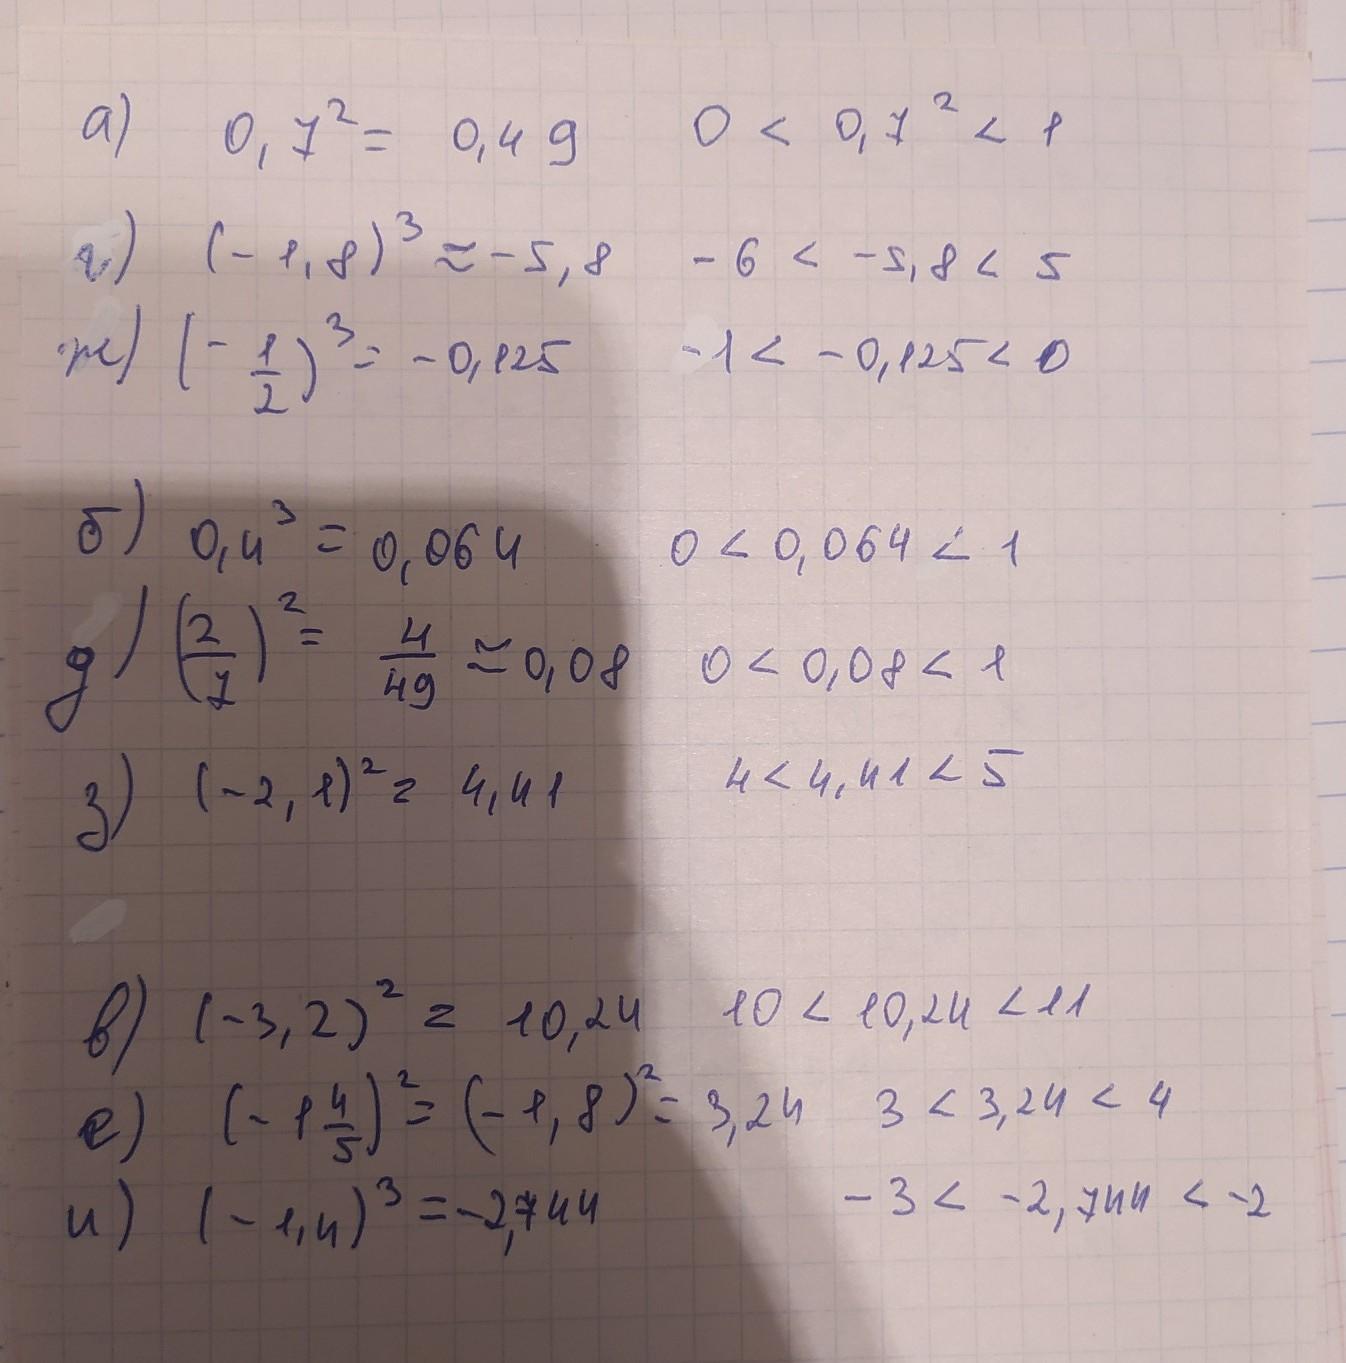 а) 0,7² = 0,49 0 < 0,7² < 1
г) (-1,8)³ ≈ -5,8 -6 < -5,8 < 5
ж) (-1/2)³ = -0,125 -1 < -0,125 < 0
б) 0,4³ = 0,064 0 < 0,064 < 1
д) (2/7)² = 4/49 ≈ 0,08 0 < 0,08 < 1
з) (-2,1)² = 4,41 4 < 4,41 < 5
в) (-3,2)² = 10,24 10 < 10,24 < 11
е) (-1 4/5)² = (-1,8)² = 3,24 3 < 3,24 < 4
и) (-1,4)³ = -2,744 -3 < -2,744 < -2